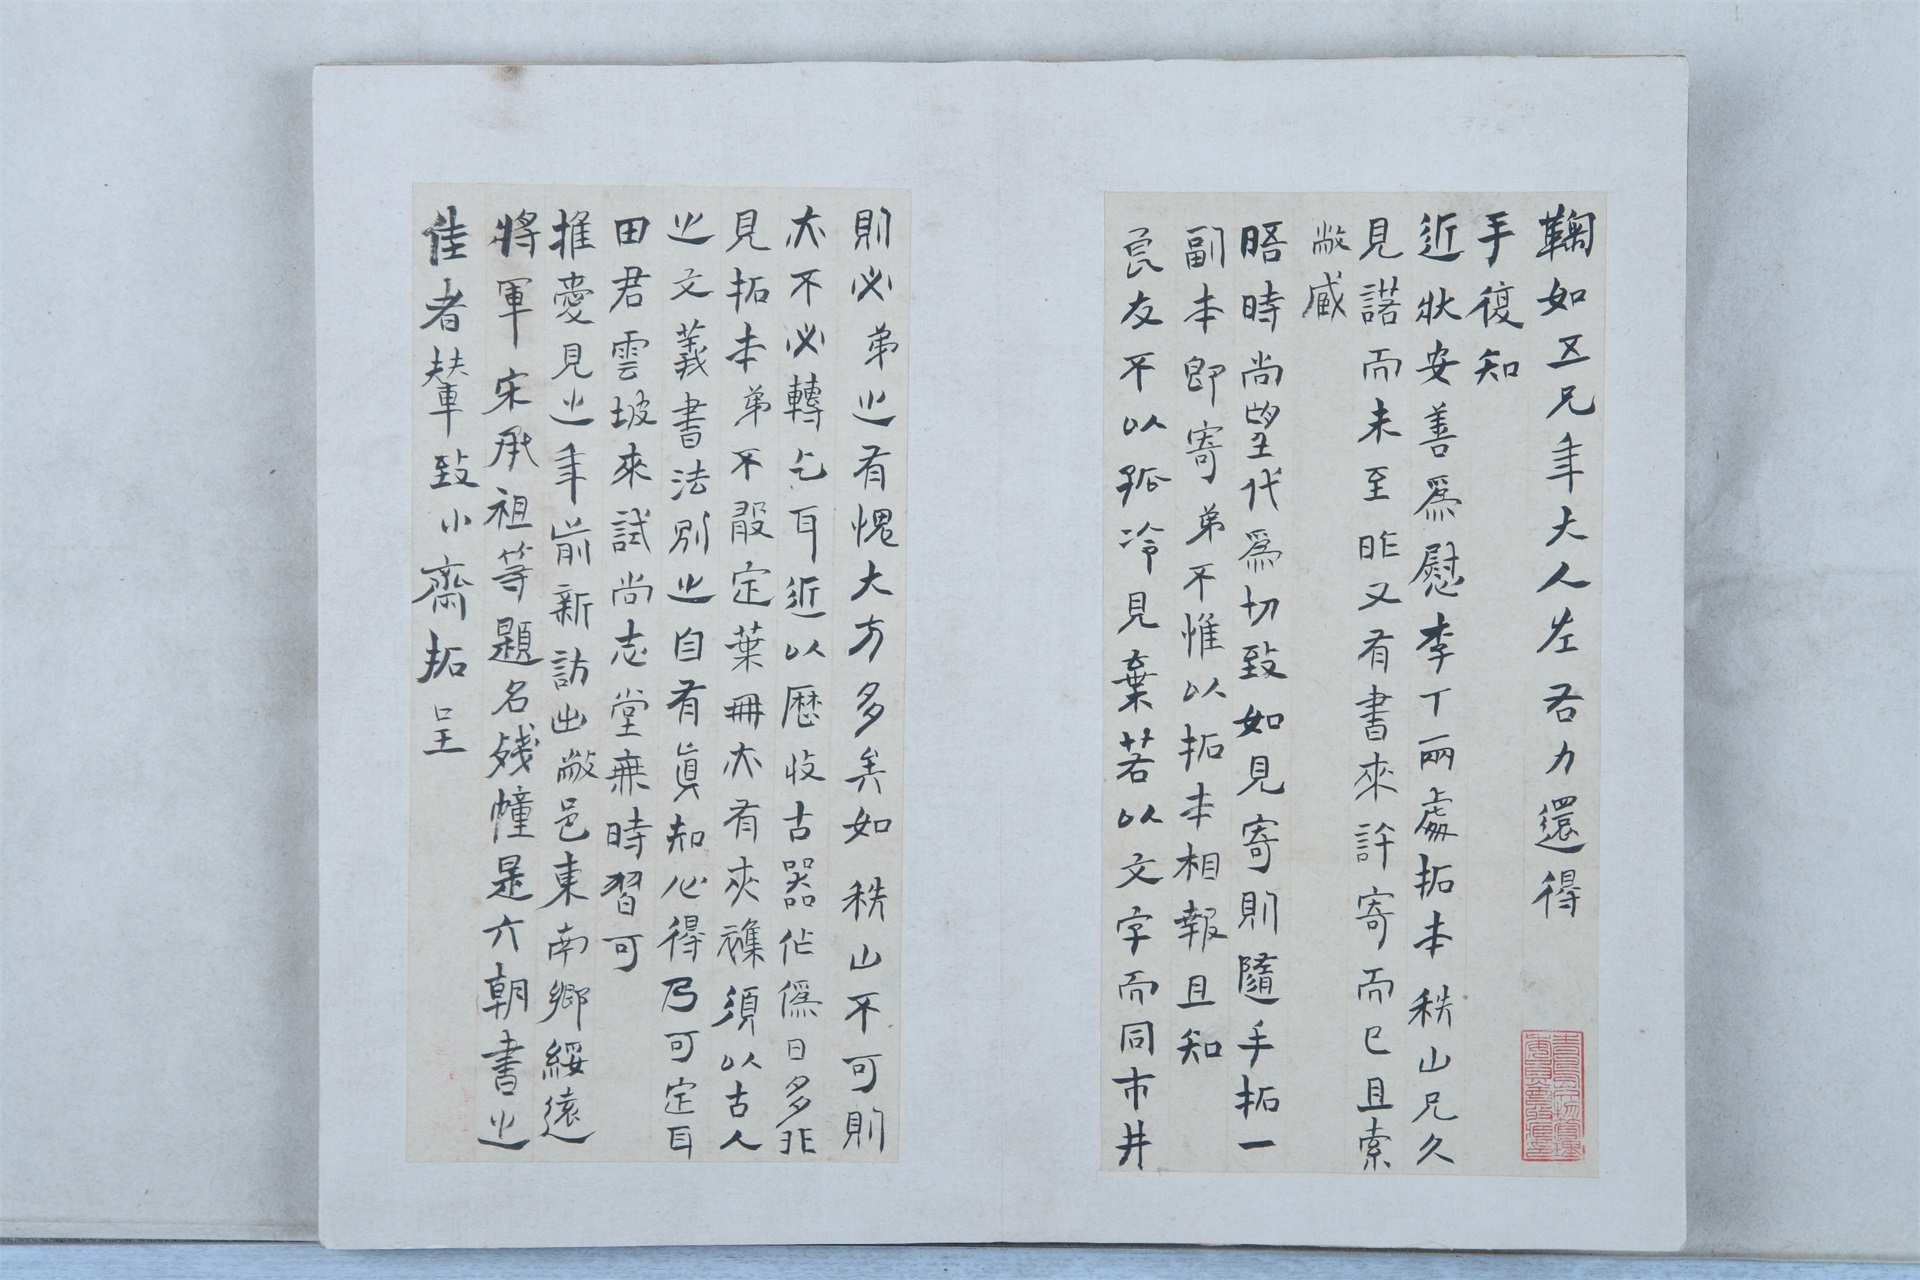 鞠如五兄年大人左右力還得
手復知
近狀安善爲慰李丁兩處拓本秩山兄久
見諾而未至昨又有書來許寄而已且索
敝臧
晤時尚望代爲切致如見寄則隨手拓一
副本即寄弟不惟以拓本相報且知
良友不以孤冷見棄若以文字而同市井
則必弟之有愧大方多矣如秩山不可則
亦不必轉乞耳近以歷收古器作僞日多非
見拓本弟不敢定葉冊亦有夾襍須以古人
之文義書法別之自有眞知心得乃可定耳
田君雲坡來試尚志堂無時習可
推愛見之年前新訪出敝邑東南鄉綏遠
將軍宋承祖等題名殘幢是六朝書之
佳者輦致小齋拓呈